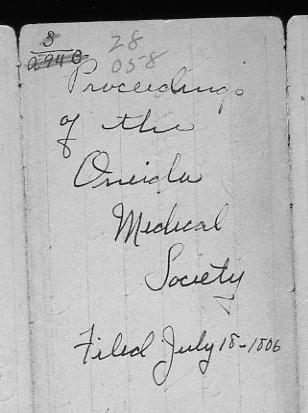 3
28
058
Proceedings
of the
Oneida
Medical
Society
Filed July 18-1806